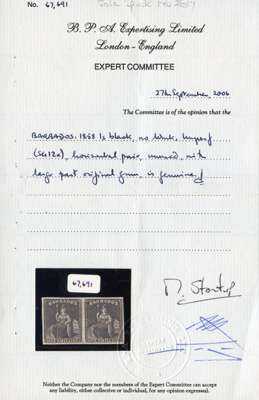 No. 67,691
B. P. A. Expertising Limited
London - England
EXPERT COMMITTEE
27th September, 2006
The Committee is of the opinion that the
BARBADOS. 1858 1s black, no wmk, imperf
(SG12a), horizontal pair, unused, with
large part original gum, is genuine.
67,691
BARBADOS BARBADOS
Neither the Company nor the members of the Expert Committee can accept
any liability, either collective or individual, for any opinion expressed.